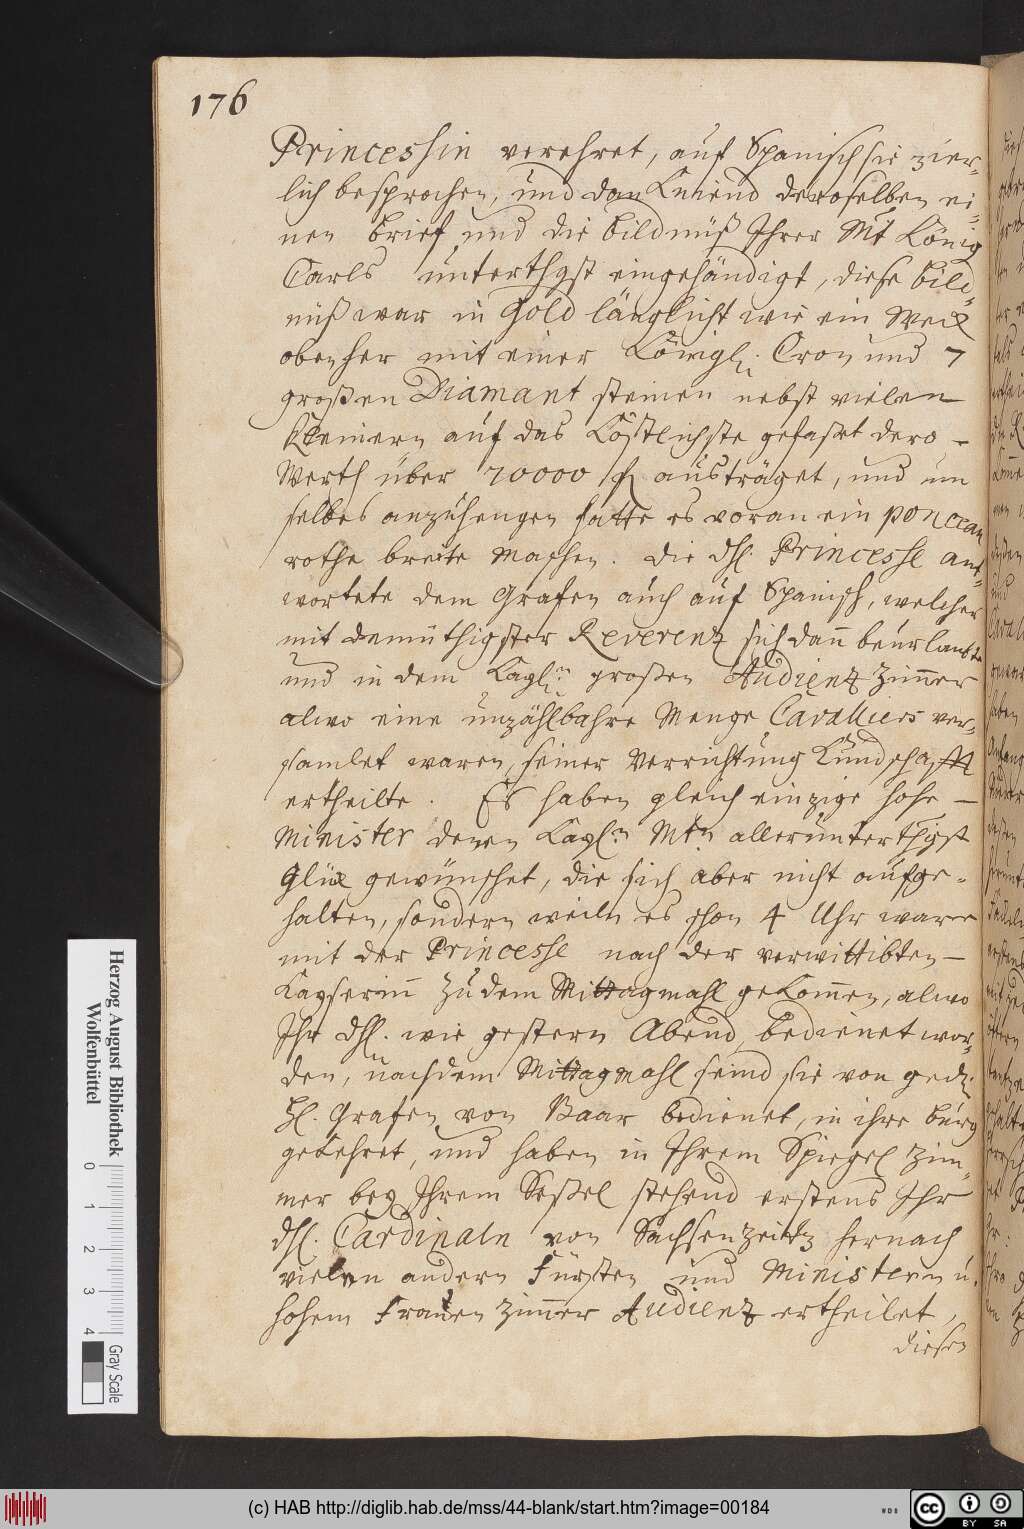 176
Princessin verehret, auf Spanisch sie zier-
lich besprochen, und dan Kniend deroselben ei-
nen brief und die bildnüß Ihrer Mt König
Carls unterthgst eingehändigt, diese bild-
nüß war in Gold länglicht wie ein Weck
obenher mit einer Königl. Cron und 7
großen Diamant steinen nebst vielen
Kleinern auf das Köstlichste gefaßt dero -
Werth über 70000 f austräget, und um
selbes anzuhengen hatte es voran ein poncean
rothe breite Maschen. die dhl. Princesse ant-
wortete dem Grafen auch auf Spanisch, welcher
mit demüthigster Reverentz sich dann beurlaubte
und in dem Kayln großen Audientz Zimmer
alwo eine unzählbahre Menge Cavalliers ver-
samlet waren, seiner Verrichtung Kundschafft
ertheilte. Es haben gleich einzige hohe -
Minister denen Kayln Mtn allerunterthgst
Glück gewünschet, die sich aber nicht aufge-
halten, sondern weiln es schon 4 Uhr ware
mit der Princesse nach der verwittibten -
Kayserinn zu dem Mittagmahl gekommen, alwo
Ihr dhl. wie gestern Abend, bedienet wor-
den, nachdem Mittagmahl seind sie von gedz.
Hl. Grafen von Baar bedienet, in ihre burg
gekehret, und haben in Ihrem Spiegel Zim-
mer bey Ihrem Seßel stehend erstens Ihr
dhl. Cardinaln von Sachsenzeitz hernach
vielen andern Fürsten und Ministern u.
hohem Frauen Zimmer Audienz ertheilet,
diesen
Herzog August Bibliothek
Wolfenbüttel
0 1 2 3 4
Gray Scale
(c) HAB http://diglib.hab.de/mss/44-blank/start.htm?image=00184
WDB
cc BY SA